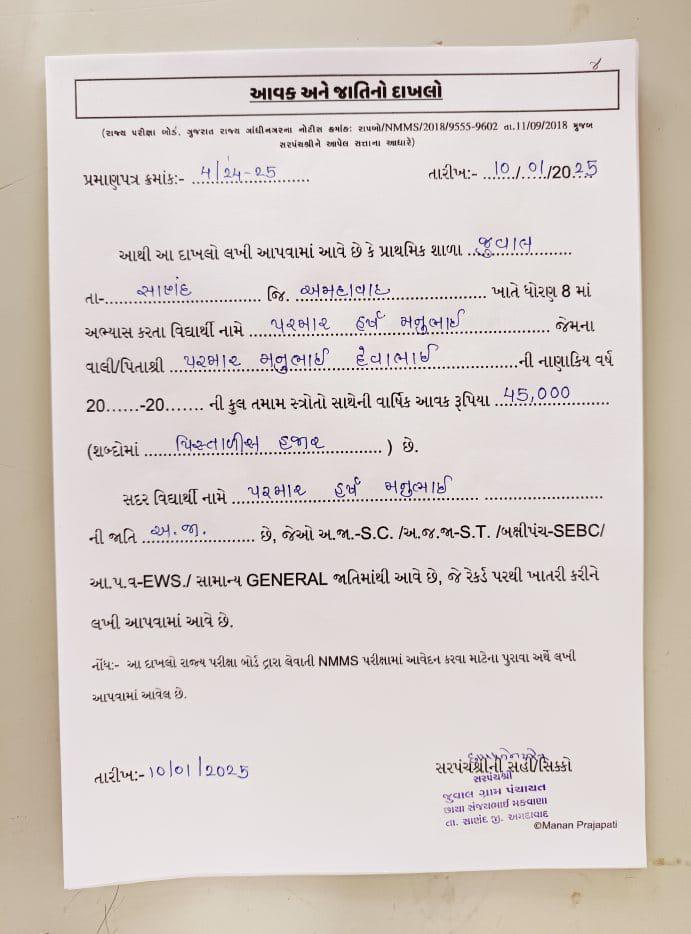 ૪
આવક અને જાતિનો દાખલો
(રાજ્ય પરીક્ષા બોર્ડ, ગુજરાત રાજ્ય ગાંધીનગરના નોટીસ ક્રમાંક: રાપબો/NMMS/2018/9555-9602 તા.11/09/2018 મુજબ
સરપંચશ્રીને આપેલ સત્તાના આધારે)
પ્રમાણપત્ર ક્રમાંક:- ..4/24-25.......... તારીખ:- ..10./.01/2025
આથી આ દાખલો લખી આપવામાં આવે છે કે પ્રાથમિક શાળા ..જુવાલ........
તા-......સાણંદ............ જિ. ..અમદાવાદ.............. ખાતે ધોરણ 8 માં
અભ્યાસ કરતા વિદ્યાર્થી નામે ....પરમાર હર્ષ મનુભાઈ............ જેમના
વાલી/પિતાશ્રી ..પરમાર મનુભાઈ દેવાભાઈ..............ની નાણાકિય વર્ષ
20......-20....... ની કુલ તમામ સ્ત્રોતો સાથેની વાર્ષિક આવક રૂપિયા ..45,000......
(શબ્દોમાં .....પિસ્તાળીસ હજાર.......... ) છે.
સદર વિદ્યાર્થી નામે ..પરમાર હર્ષ મનુભાઈ..... ....................
ની જાતિ ..અ.જા......... છે, જેઓ અ.જા.-S.C. /અ.જ.જા-S.T. /બક્ષીપંચ-SEBC/
આ.પ.વ-EWS./ સામાન્ય GENERAL જાતિમાંથી આવે છે, જે રેકર્ડ પરથી ખાતરી કરીને
લખી આપવામાં આવે છે.
નોંધ:- આ દાખલો રાજ્ય પરીક્ષા બોર્ડ દ્વારા લેવાતી NMMS પરીક્ષામાં આવેદન કરવા માટેના પુરાવા અર્થે લખી
આપવામાં આવેલ છે.
તારીખ:-10/01/2025 સરપંચશ્રીની સહી/સિક્કો
સરપંચશ્રી
જુવાલ ગ્રામ પંચાયત
છાયા સંજયભાઈ મકવાણા
તા. સાણંદ જી. અમદાવાદ
©Manan Prajapati